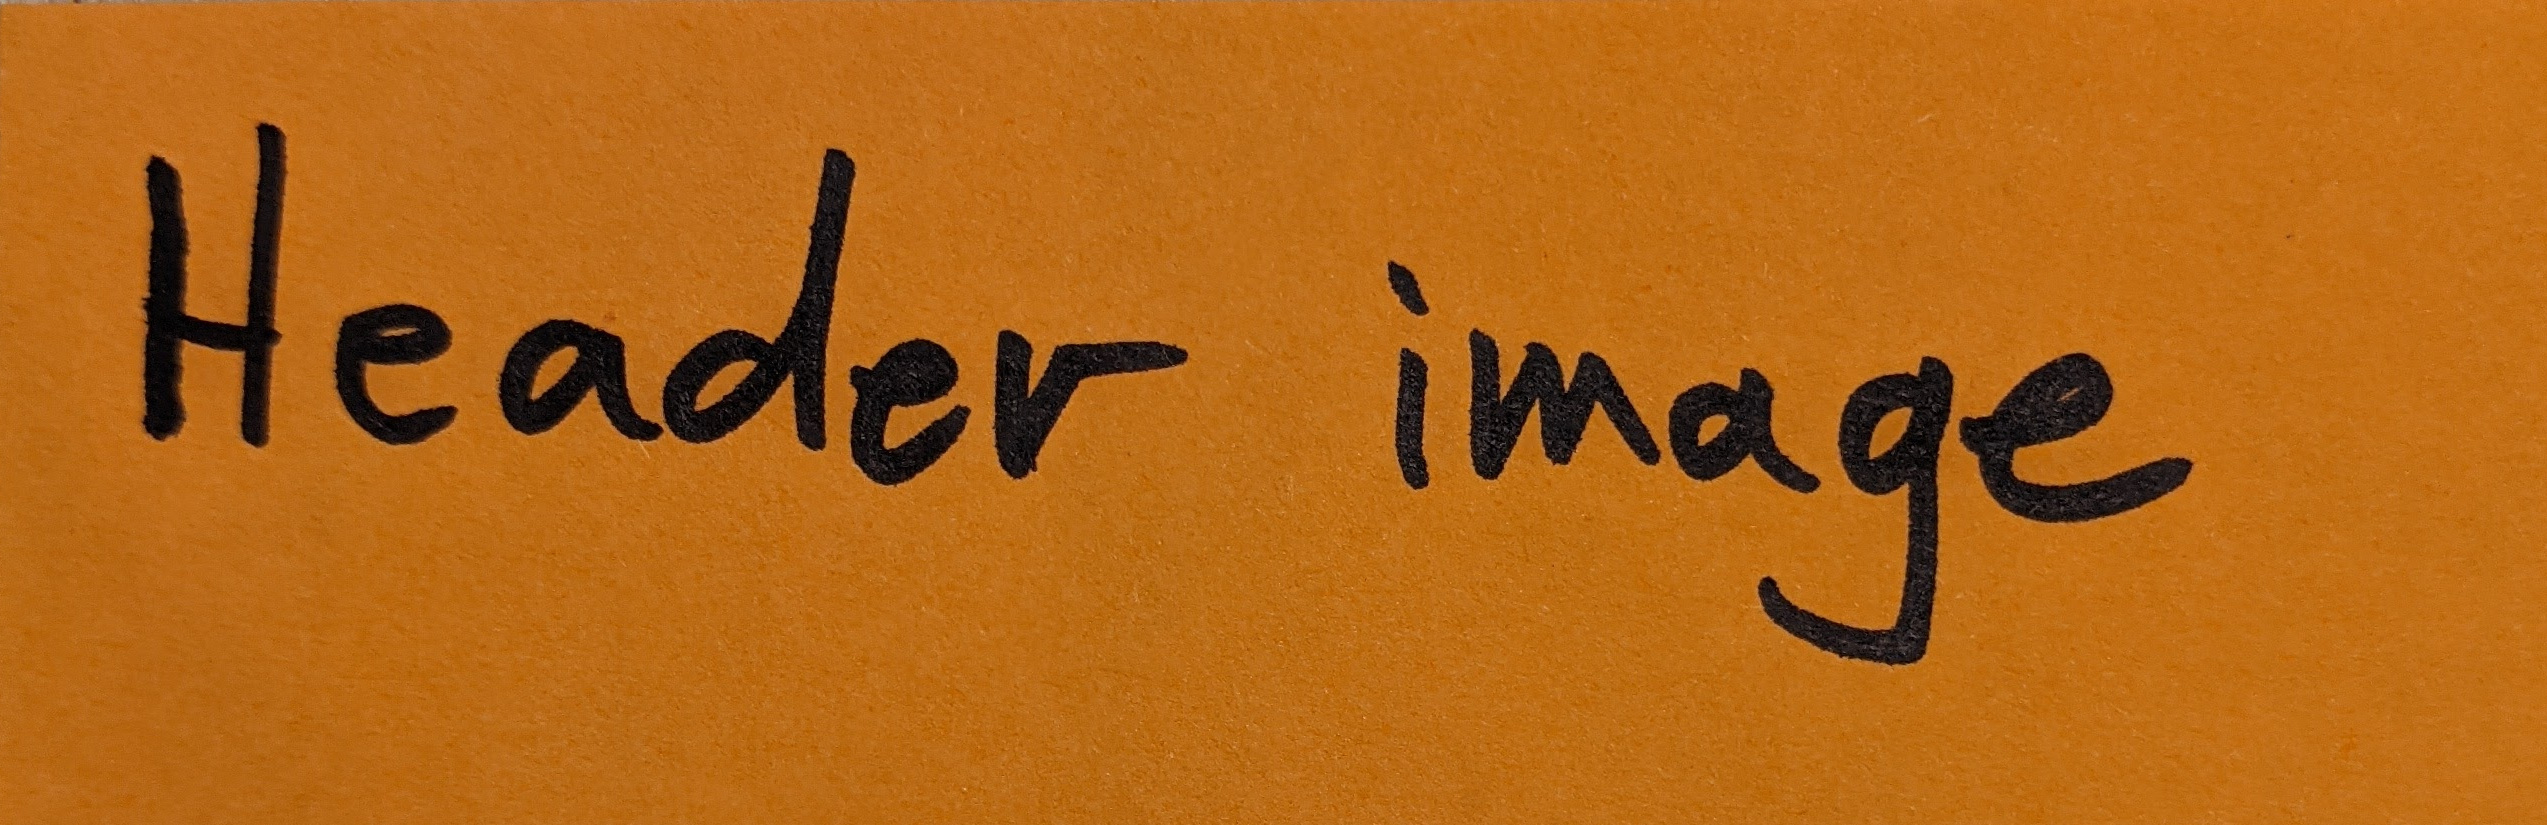 Header image